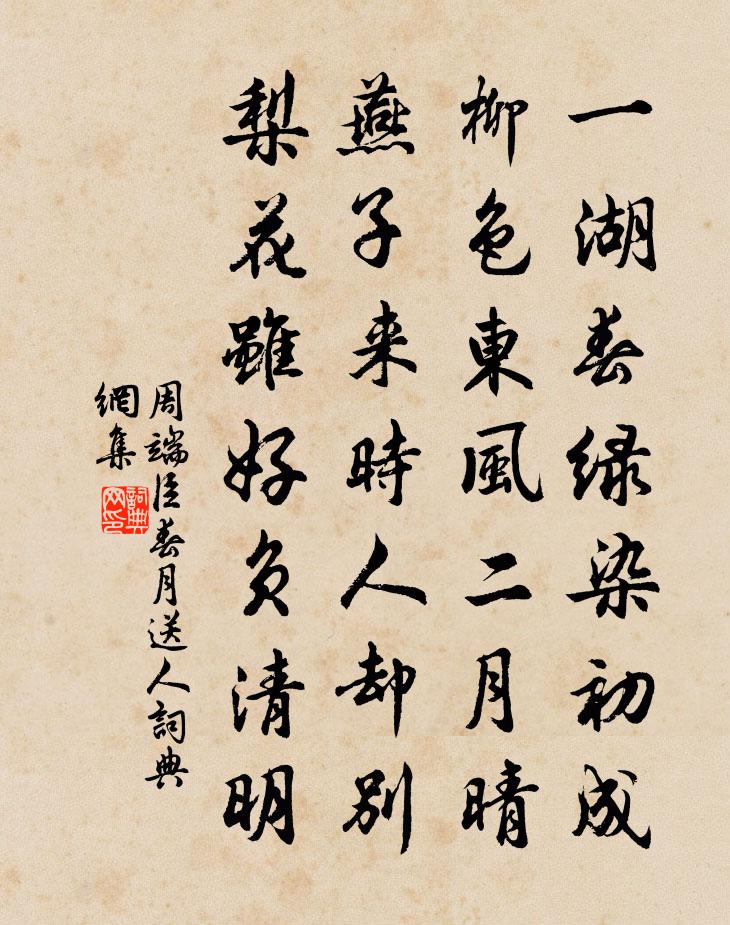 一湖春緑染初成
柳色東風二月晴
燕子来時人却别
梨花雖好負清明
周端臣春月送人詞典
網集
詞典
网印